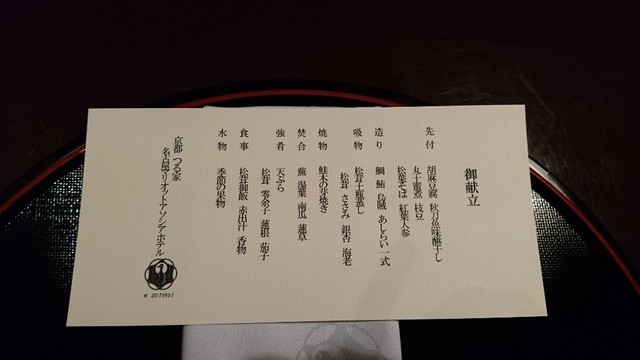 御献立
先付
胡麻豆腐 秋刀魚味醂干し
丸十蜜煮 枝豆
松葉そば 紅葉人参
造り
鯛 鮪 烏賊 あしらい一式
吸物
松茸土瓶蒸し
松茸 ささみ 銀杏 海老
焼物
鮭木の芽焼き
焚合
蕪 湯葉 南瓜 蓮草
強肴
天ぷら
松茸 零余子 蓮根 茄子
食事
松茸御飯 赤出汁 香物
水物
季節の果物
京都 つる家
名古屋マリオットアソシアホテル